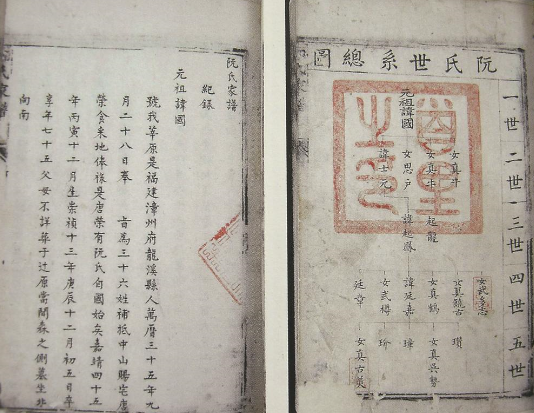 阮氏世系總圖
一世 二世 三世 四世 五世
元祖諱國
諱士元
女思戶
女真牛
女真斗
起龍
諱廷嘉
女真鶴
廷章
瓚
阮氏家譜
紀錄
元祖諱國
號我華原是福建漳州府龍溪縣人萬曆三十五年九
月二十八日奉 旨為三十六姓補抵中山賜宅唐
榮食采地俸祿是唐榮有阮氏自國始矣嘉靖四十五
年丙寅十二月生崇禎十三年庚辰十二月初五日卒
享年七十五父母不詳葬于辻原當間森之側墓坐北
向南